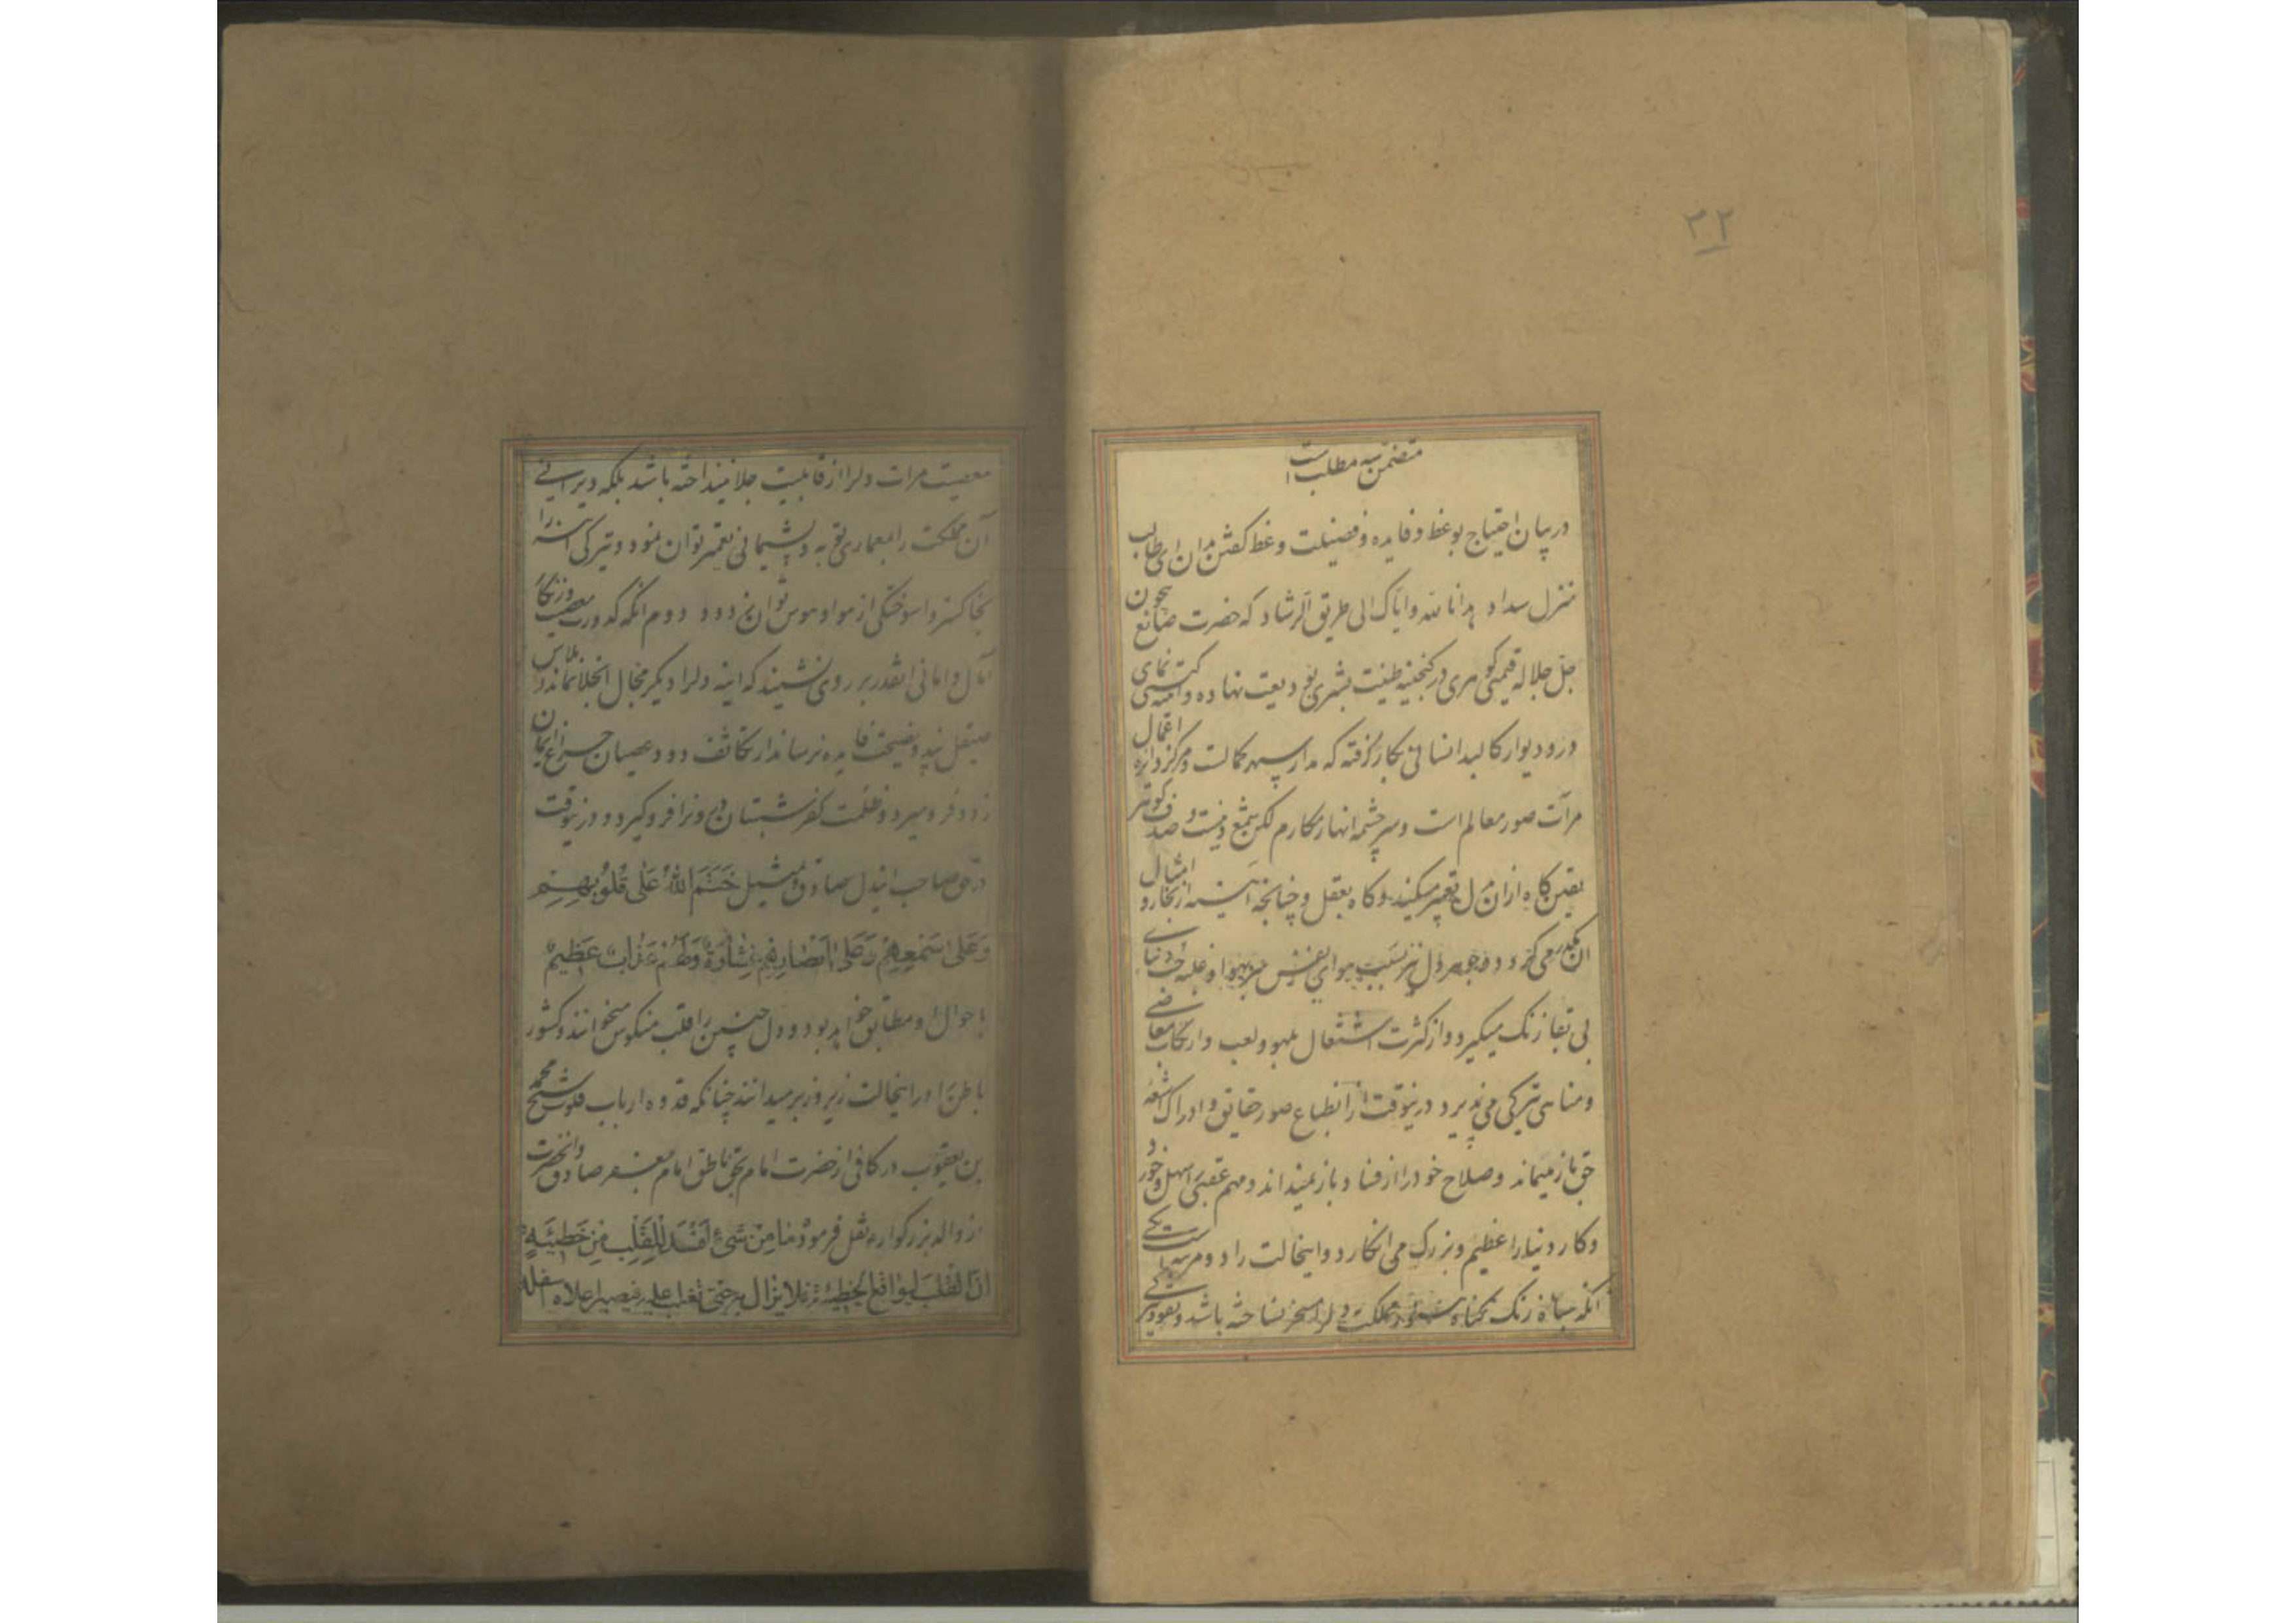 ۳۲
متضمن سه مطلب است
در بیان احتیاج بوعظ و فایده و فضیلت وعظ گفتن بدان ای طالب
منزل سداد هدانا الله و ایاک الی طریق الرشاد که حضرت صانع بیچون
جل جلاله قیمتی گوهری در گنجینه طینت بشری بودیعت نهاده و آینه گیتی نمای
در و دیوار کالبد انسانی بکار گرفته که مدار سپهر کمالت و مرکز دایره اعمال
مرآت صور معالم است و سرچشمه انهار مکارم لکن شمع و صدف گوهر
یقین گاه ازان بدل تعبیر میکنند و گاه بعقل و چنانچه آینه از بخار و امثال
ان مکدر می گردد جوهر دل نیز بسبب هوای نفس و غلبه حب دنیای
بی بقا زنگ میگیرد و از کثرت اشتغال بلهو و لعب و ارتکاب معاصی
و مناهی تیرگی می پذیرد درینوقت از انطباع صور حقایق و ادراک اشعه
حق باز میماند و صلاح خود را از فساد باز نمیداند و مهم عقبی را سهل و خورد
و کار دنیا را عظیم و بزرگ می انگارد و اینحالت را دو مرتبه است یکی
انکه سپاه زنگ گناه هنوز مملکت دلرا مسخر نساخته باشد و
معصیت مرات دلرا از قابلیت جلا نینداخته باشد بلکه ویرانی
آن مملکت را بمعماری توبه و پشیمانی تعمیر توان نمود و تیرگی آینه را
بخاکستر واسوختگی از هوا و هوس توان زدود دوم انکه کدورت معصیت و زنگار
آمال و امانی انقدر بر روی نشیند که اینه دلرا دیگر مجال انجلا نماند و
صیقل پند و نصیحت فایده نرساند از تکاثف دود عصیان چراغ ایمان
زود فرو میرد و ظلمت کفر شبستان درونرا فرو گیرد و درینوقت
در حق صاحب ایندل صادق و تمثیل خَتَمَ اللهُ عَلی قُلُوبِهِم
وَعَلی سَمْعِهِم وَعَلی اَبْصارِهِم غِشاوَةٌ وَلَهُم عَذابٌ عَظیمٌ
باحوال او مطابق خواهد بود و دل چنین را قلب منکوس میخوانند و کشور
باطن را در اینحالت زیر و زبر میدانند چنانکه قدوه ارباب شیخ محمد
بن یعقوب در کافی از حضرت امام بحق ناطق امام جعفر صادق و انحضرت
از والد بزرگوار نقل فرموده ما مِن شیءٍ اَفسَد لِلقَلبِ مِن خَطیئَةٍ
انّ القلبَ لیواقع الخطیئة فلا یزال به حتی تغلب علیه فیصیر اعلاه اسفله